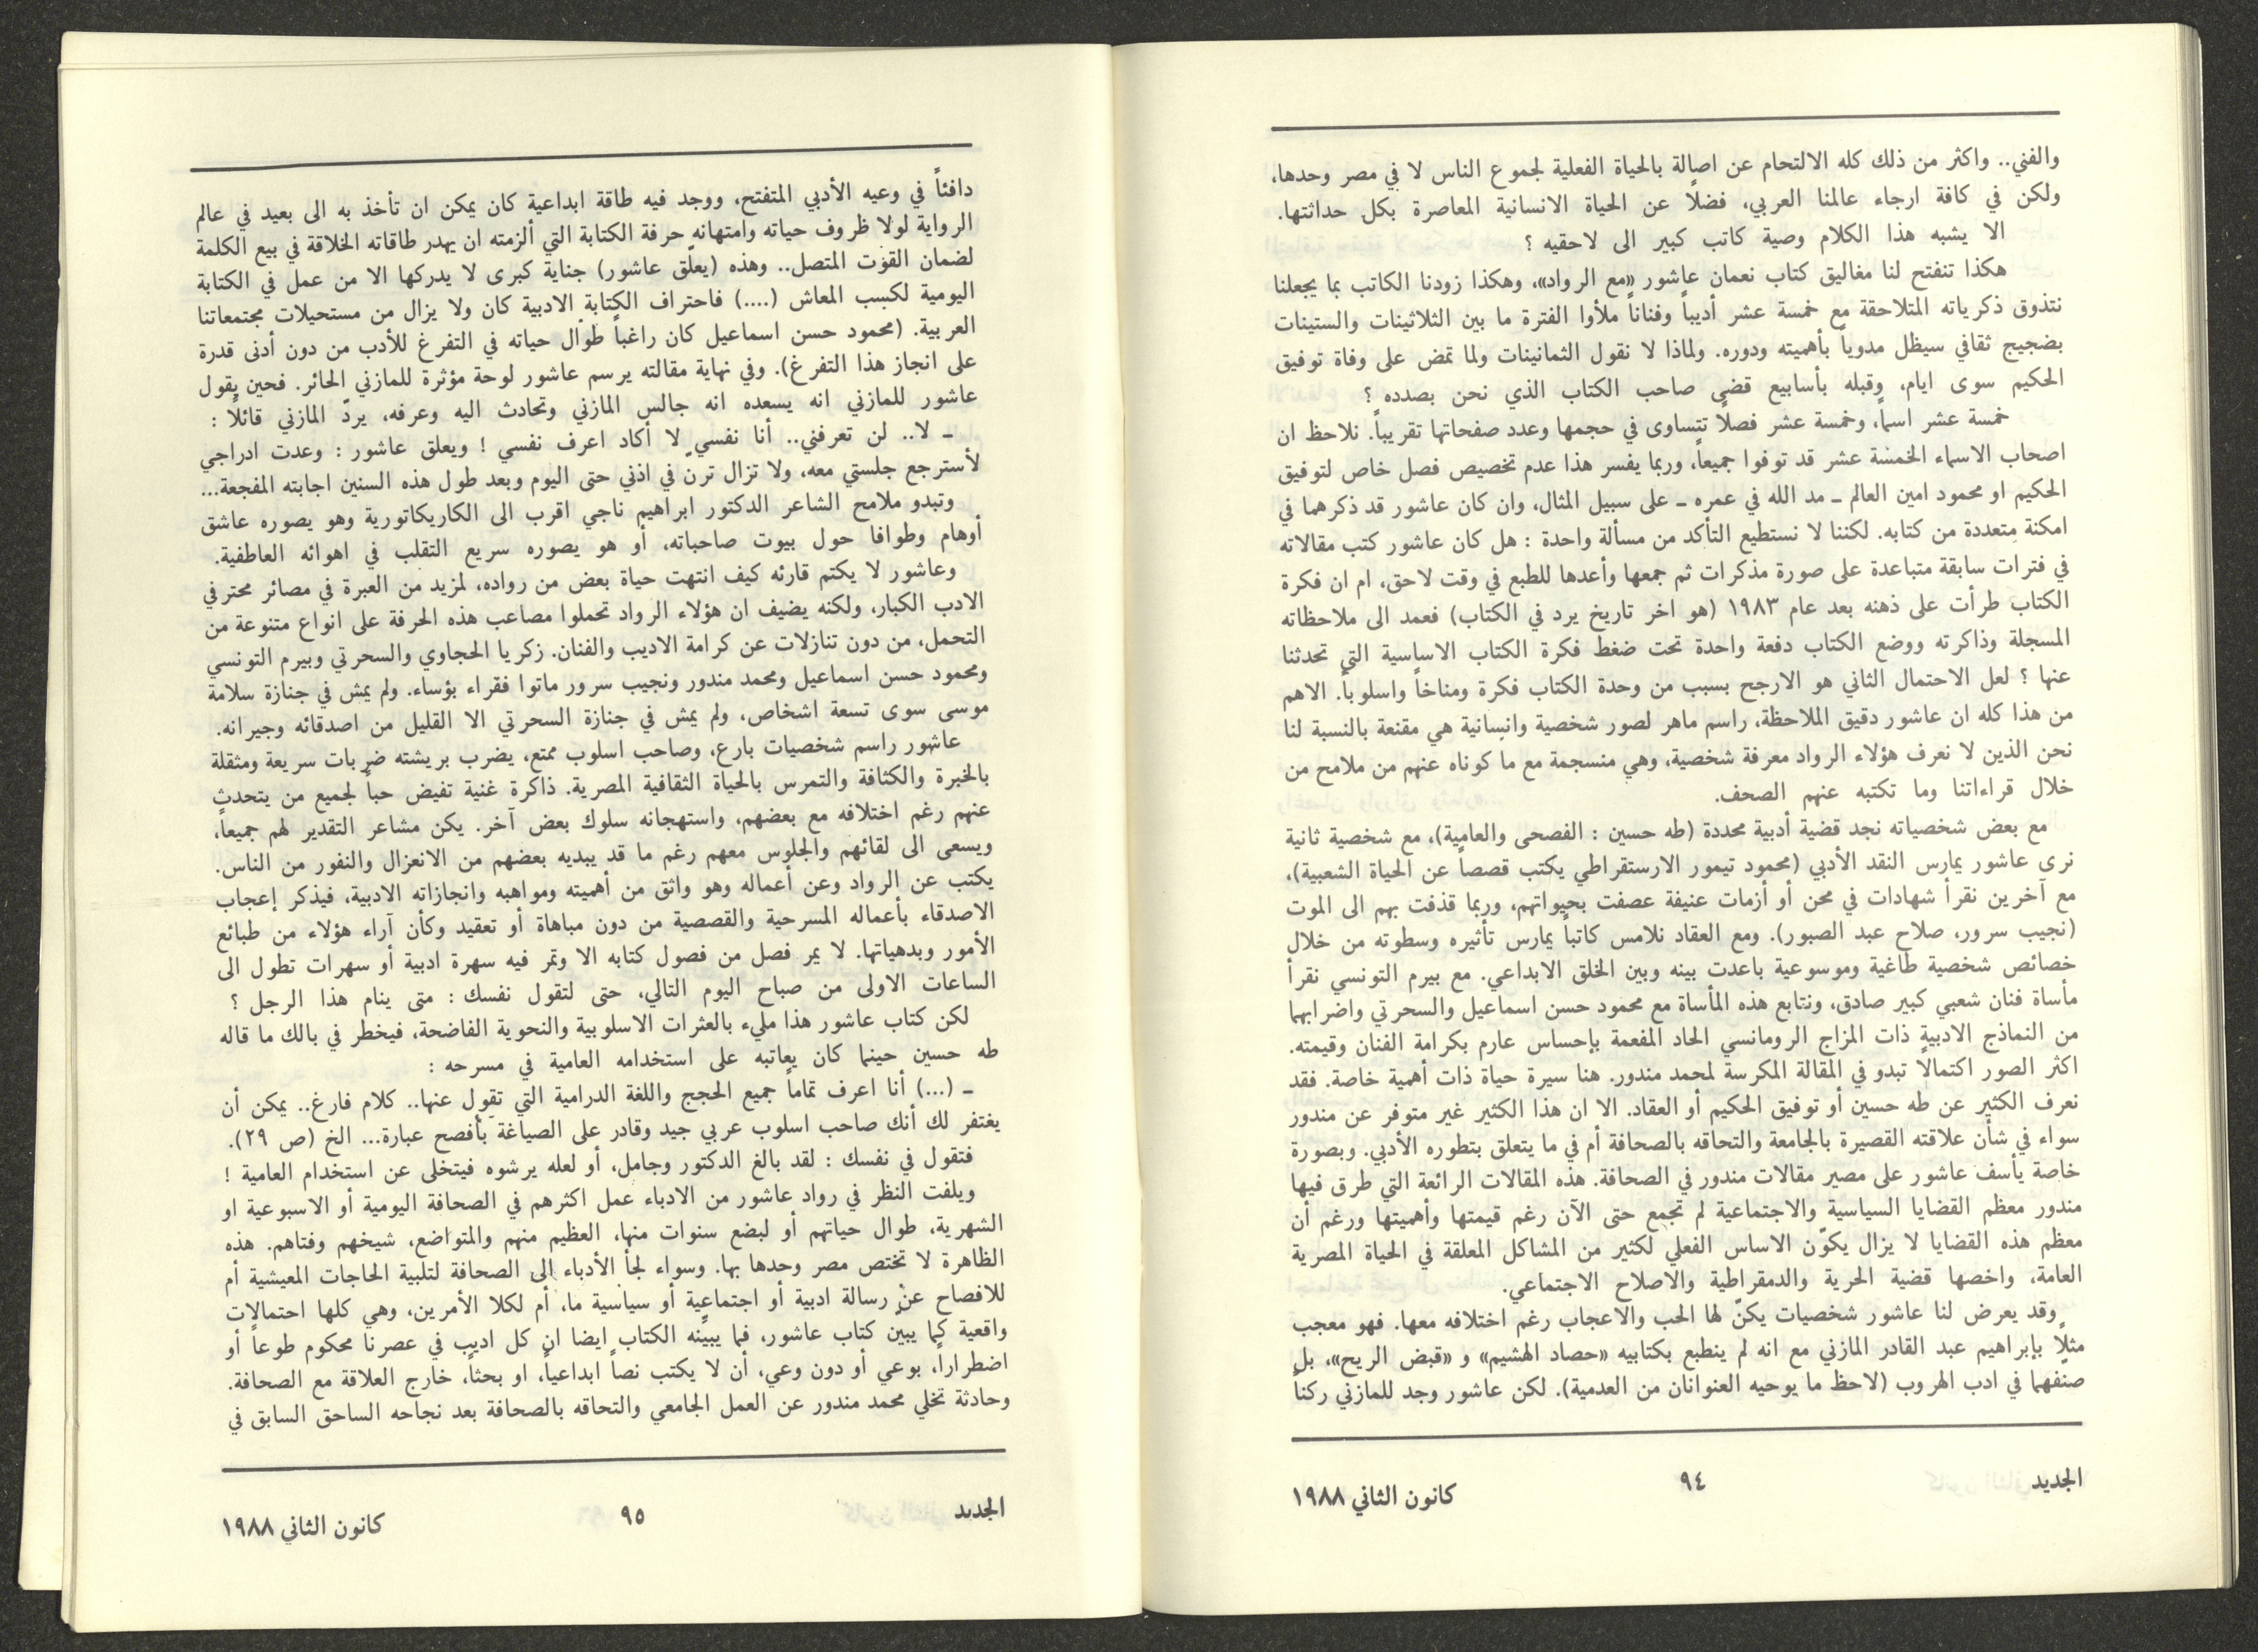 والفني.. واكثر من ذلك كله الالتحام عن اصالة بالحياة الفعلية لجموع الناس لا في مصر وحدها،
ولكن في كافة ارجاء عالمنا العربي، فضلاً عن الحياة الانسانية المعاصرة بكل حداثتها.
الا يشبه هذا الكلام وصية كاتب كبير الى لاحقيه ؟
هكذا تنفتح لنا مغاليق كتاب نعمان عاشور «مع الرواد»، وهكذا زودنا الكاتب بما يجعلنا
نتذوق ذكرياته المتلاحقة مع خمسة عشر أديباً وفناناً ملأوا الفترة ما بين الثلاثينات والستينات
بضجيج ثقافي سيظل مدوياً بأهميته ودوره. ولماذا لا نقول الثمانينات ولما تمض على وفاة توفيق
الحكيم سوى ايام، وقبله بأسابيع قضى صاحب الكتاب الذي نحن بصدده ؟
خمسة عشر اسماً، وخمسة عشر فصلاً تتساوى في حجمها وعدد صفحاتها تقريباً. نلاحظ ان
اصحاب الاسماء الخمسة عشر قد توفوا جميعاً، وربما يفسر هذا عدم تخصيص فصل خاص لتوفيق
الحكيم او محمود امين العالم ـ مد الله في عمره ـ على سبيل المثال، وان كان عاشور قد ذكرهما في
امكنة متعددة من كتابه. لكننا لا نستطيع التأكد من مسألة واحدة : هل كان عاشور كتب مقالاته
في فترات سابقة متباعدة على صورة مذكرات ثم جمعها وأعدها للطبع في وقت لاحق، ام ان فكرة
الكتاب طرأت على ذهنه بعد عام ١٩٨٣ (هو اخر تاريخ يرد في الكتاب) فعمد الى ملاحظاته
المسجلة وذاكرته ووضع الكتاب دفعة واحدة تحت ضغط فكرة الكتاب الاساسية التي تحدثنا
عنها ؟ لعل الاحتمال الثاني هو الارجح بسبب من وحدة الكتاب فكرة ومناخاً واسلوباً. الاهم
من هذا كله ان عاشور دقيق الملاحظة، راسم ماهر لصور شخصية وانسانية هي مقنعة بالنسبة لنا
نحن الذين لا نعرف هؤلاء الرواد معرفة شخصية، وهي منسجمة مع ما كوناه عنهم من ملامح من
خلال قراءاتنا وما تكتبه عنهم الصحف.
مع بعض شخصياته نجد قضية أدبية محددة (طه حسين : الفصحى والعامية)، مع شخصية ثانية
نرى عاشور يمارس النقد الأدبي (محمود تيمور الارستقراطي يكتب قصصاً عن الحياة الشعبية)،
مع آخرين نقرأ شهادات في محن أو أزمات عنيفة عصفت بحيواتهم، وربما قذفت بهم الى الموت
(نجيب سرور، صلاح عبد الصبور). ومع العقاد نلامس كاتباً يمارس تأثيره وسطوته من خلال
خصائص شخصية طاغية وموسوعية باعدت بينه وبين الخلق الابداعي. مع بيرم التونسي نقرأ
مأساة فنان شعبي كبير صادق، ونتابع هذه المأساة مع محمود حسن اسماعيل والسحرتي واضرابهما
من النماذج الادبية ذات المزاج الرومانسي الحاد المفعمة بإحساس عارم بكرامة الفنان وقيمته.
اكثر الصور اكتمالاً تبدو في المقالة المكرسة لمحمد مندور. هنا سيرة حياة ذات أهمية خاصة. فقد
نعرف الكثير عن طه حسين أو توفيق الحكيم أو العقاد. الا ان هذا الكثير غير متوفر عن مندور
سواء في شأن علاقته القصيرة بالجامعة والتحاقه بالصحافة أم في ما يتعلق بتطوره الأدبي. وبصورة
خاصة يأسف عاشور على مصير مقالات مندور في الصحافة. هذه المقالات الرائعة التي طرق فيها
مندور معظم القضايا السياسية والاجتماعية لم تجمع حتى الآن رغم قيمتها وأهميتها ورغم أن
معظم هذه القضايا لا يزال يكوّن الاساس الفعلي لكثير من المشاكل المعلقة في الحياة المصرية
العامة، واخصها قضية الحرية والدمقراطية والاصلاح الاجتماعي.
وقد يعرض لنا عاشور شخصيات يكنّ لها الحب والاعجاب رغم اختلافه معها. فهو معجب
مثلاً بإبراهيم عبد القادر المازني مع انه لم ينطبع بكتابيه «حصاد الهشيم» و «قبض الريح»، بل
صنفهما في ادب الهروب (لاحظ ما يوحيه العنوانان من العدمية). لكن عاشور وجد للمازني ركناً
الجديد
٩٤
كانون الثاني ١٩٨٨
دافئاً في وعيه الأدبي المتفتح، ووجد فيه طاقة ابداعية كان يمكن ان تأخذ به الى بعيد في عالم
الرواية لولا ظروف حياته وامتهانه حرفة الكتابة التي ألزمته ان يهدر طاقاته الخلاقة في بيع الكلمة
لضمان القوت المتصل.. وهذه (يعلّق عاشور) جناية كبرى لا يدركها الا من عمل في الكتابة
اليومية لكسب المعاش (....) فاحتراف الكتابة الادبية كان ولا يزال من مستحيلات مجتمعاتنا
العربية. (محمود حسن اسماعيل كان راغباً طوال حياته في التفرغ للأدب من دون أدنى قدرة
على انجاز هذا التفرغ). وفي نهاية مقالته يرسم عاشور لوحة مؤثرة للمازني الحائر. فحين يقول
عاشور للمازني انه يسعده انه جالس المازني وتحادث اليه وعرفه، يردّ المازني قائلاً :
ـ لا.. لن تعرفني.. أنا نفسي لا أكاد اعرف نفسي ! ويعلق عاشور : وعدت ادراجي
لأسترجع جلستي معه، ولا تزال ترنّ في اذني حتى اليوم وبعد طول هذه السنين اجابته المفجعة...
وتبدو ملامح الشاعر الدكتور ابراهيم ناجي اقرب الى الكاريكاتورية وهو يصوره عاشق
أوهام وطوافا حول بيوت صاحباته، أو هو يصوره سريع التقلب في اهوائه العاطفية.
وعاشور لا يكتم قارئه كيف انتهت حياة بعض من رواده، لمزيد من العبرة في مصائر محترفي
الادب الكبار، ولكنه يضيف ان هؤلاء الرواد تحملوا مصاعب هذه الحرفة على انواع متنوعة من
التحمل، من دون تنازلات عن كرامة الاديب والفنان. زكريا الحجاوي والسحرتي وبيرم التونسي
ومحمود حسن اسماعيل ومحمد مندور ونجيب سرور ماتوا فقراء بؤساء. ولم يمش في جنازة سلامة
موسى سوى تسعة اشخاص، ولم يمش في جنازة السحرتي الا القليل من اصدقائه وجيرانه.
عاشور راسم شخصيات بارع، وصاحب اسلوب ممتع، يضرب بريشته ضربات سريعة ومثقلة
بالخبرة والكثافة والتمرس بالحياة الثقافية المصرية. ذاكرة غنية تفيض حباً لجميع من يتحدث
عنهم رغم اختلافه مع بعضهم، واستهجانه سلوك بعض آخر. يكن مشاعر التقدير لهم جميعاً،
ويسعى الى لقائهم والجلوس معهم رغم ما قد يبديه بعضهم من الانعزال والنفور من الناس.
يكتب عن الرواد وعن أعماله وهو واثق من أهميته ومواهبه وانجازاته الادبية، فيذكر إعجاب
الاصدقاء بأعماله المسرحية والقصصية من دون مباهاة أو تعقيد وكأن آراء هؤلاء من طبائع
الأمور وبدهياتها. لا يمر فصل من فصول كتابه الا وتمر فيه سهرة ادبية أو سهرات تطول الى
الساعات الاولى من صباح اليوم التالي، حتى لتقول نفسك : متى ينام هذا الرجل ؟
لكن كتاب عاشور هذا مليء بالعثرات الاسلوبية والنحوية الفاضحة، فيخطر في بالك ما قاله
طه حسين حينما كان يعاتبه على استخدامه العامية في مسرحه :
ـ (...) أنا اعرف تماماً جميع الحجج واللغة الدرامية التي تقول عنها.. كلام فارغ.. يمكن أن
يغتفر لك أنك صاحب اسلوب عربي جيد وقادر على الصياغة بأفصح عبارة... الخ (ص ٢٩).
فتقول في نفسك : لقد بالغ الدكتور وجامل، أو لعله يرشوه فيتخلى عن استخدام العامية !
ويلفت النظر في رواد عاشور من الادباء عمل اكثرهم في الصحافة اليومية أو الاسبوعية او
الشهرية، طوال حياتهم أو لبضع سنوات منها، العظيم منهم والمتواضع، شيخهم وفتاهم. هذه
الظاهرة لا تختص مصر وحدها بها. وسواء لجأ الأدباء الى الصحافة لتلبية الحاجات المعيشية أم
للافصاح عن رسالة ادبية أو اجتماعية أو سياسية ما، أم لكلا الأمرين، وهي كلها احتمالات
واقعية كما يبين كتاب عاشور، فما يبيّنه الكتاب ايضا ان كل اديب في عصرنا محكوم طوعاً أو
اضطراراً، بوعي أو دون وعي، أن لا يكتب نصاً ابداعياً، او بحثاً، خارج العلاقة مع الصحافة.
وحادثة تخلي محمد مندور عن العمل الجامعي والتحاقه بالصحافة بعد نجاحه الساحق السابق في
الجديد
٩٥
كانون الثاني ١٩٨٨